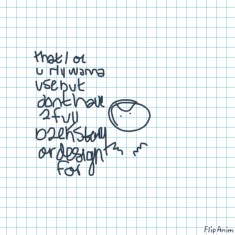 that/or
u rly wanna
use but
dont have
2 fully
backstory
or design
for
FlipAnim